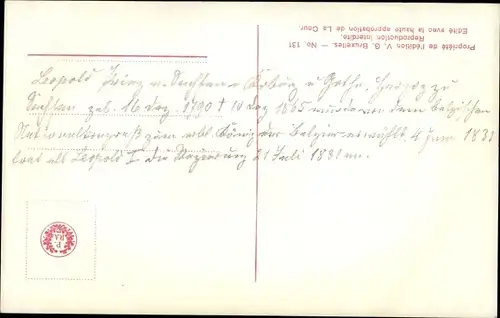 Propriété de l'édition V. G. Bruxelles. — No. 131
Reproduction interdite.
Edité avec la haute approbation de La Cour.
Leopold Prinz v. Sachsen Koburg u Gotha, Herzog zu
Sachsen geb. 16 Dez. 1790 † 10 Dez 1865 wurde von dem belgischen
Nationalkongreß zum erbl. König der Belgier erwählt 4 Juni 1831
trat als Leopold I die Regierung 21 Juli 1831 an.
P.
RA